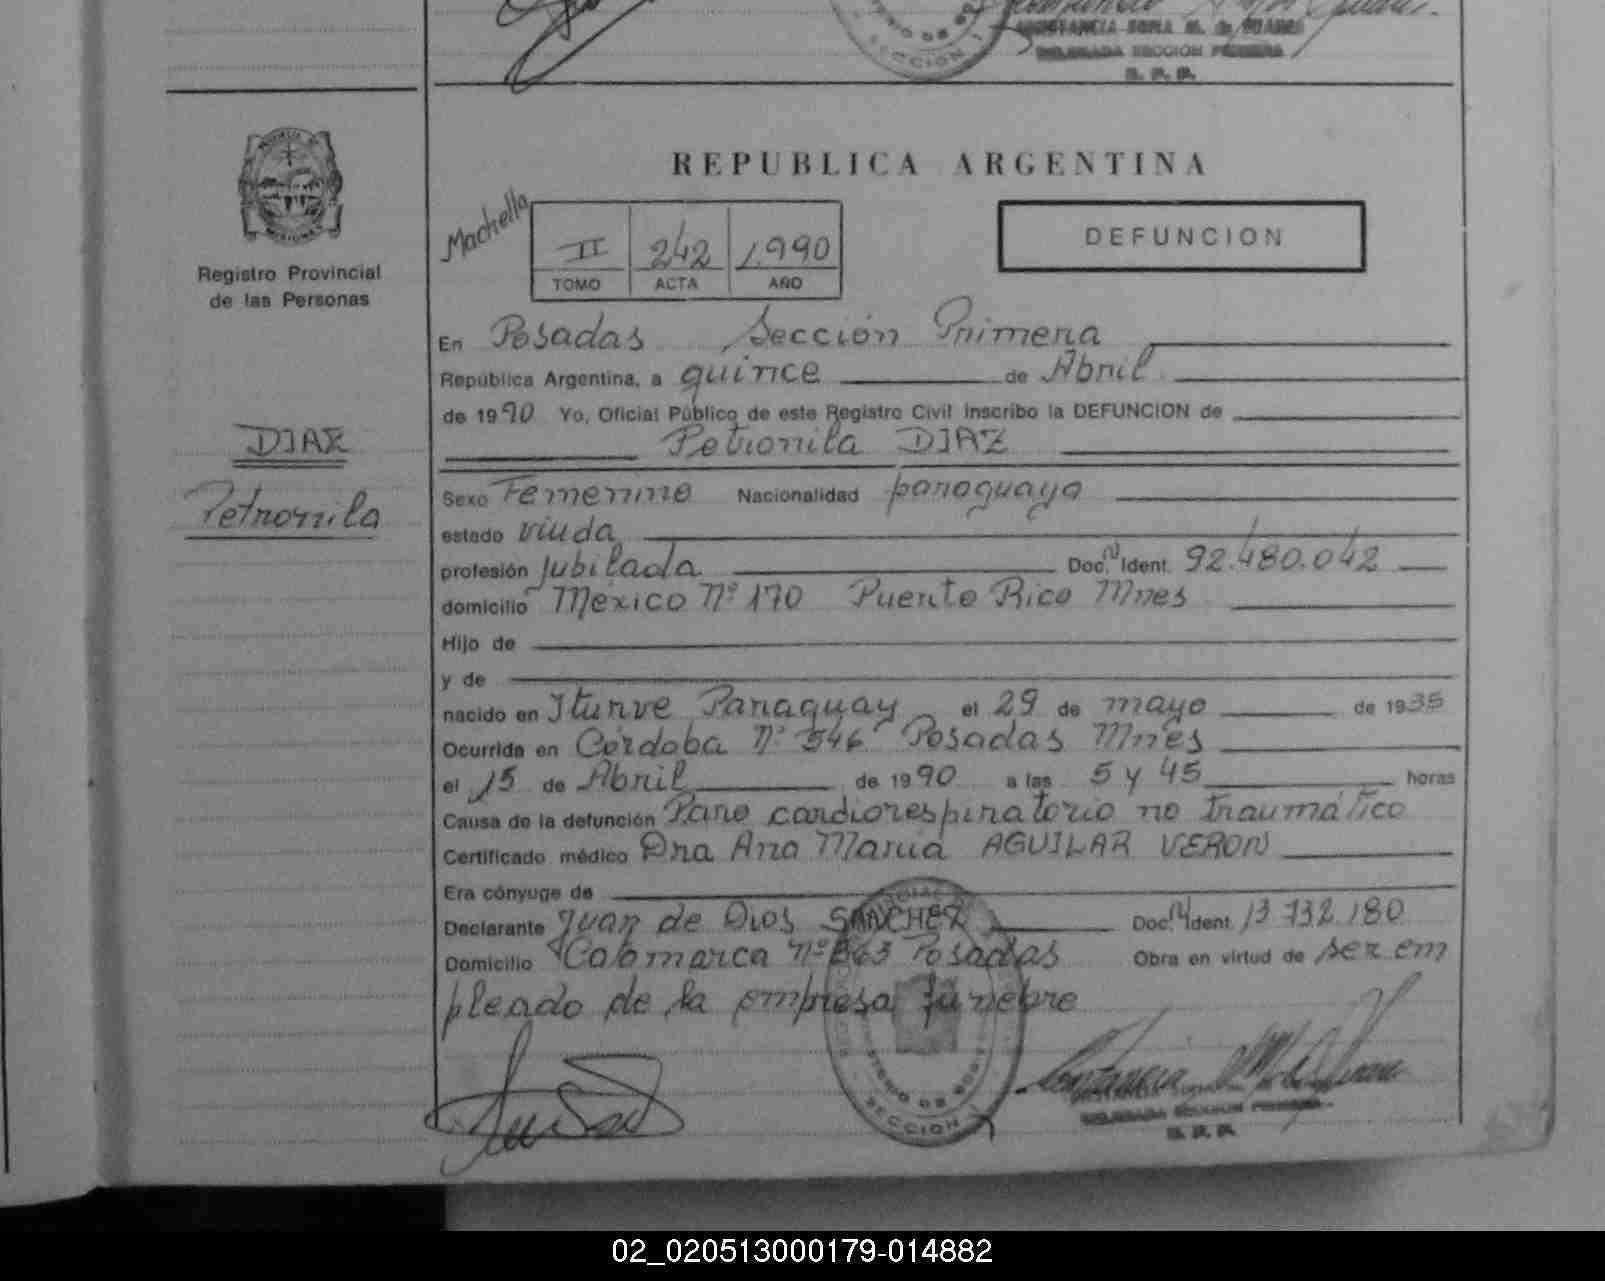 SECCION 1
DELEGADA SECCION PRIMERA
R. P. P.
REPUBLICA ARGENTINA
Machella
II 242 1.990
TOMO ACTA AÑO
DEFUNCION
Registro Provincial
de las Personas
DIAZ
Petronila
En Posadas Sección Primera
República Argentina, a quince de Abril
de 1990 Yo, Oficial Público de este Registro Civil inscribo la DEFUNCION de
Petronila DIAZ
Sexo Femenino Nacionalidad paraguaya
estado viuda
profesión Jubilada Doc. N Ident. 92.480.042
domicilio México Nº 170 Puerto Rico Mnes
Hijo de
y de
nacido en Iturve Paraguay el 29 de mayo de 1935
Ocurrida en Córdoba Nº 546 Posadas Mnes
el 15 de Abril de 1990 a las 5 y 45 horas
Causa de la defunción Paro cardiorespiratorio no traumático
Certificado médico Dra Ana María AGUILAR VERON
Era cónyuge de
Declarante Juan de Dios SANCHEZ Doc. N Ident. 13.732.180
Domicilio Catamarca Nº 563 Posadas Obra en virtud de ser em
pleado de la empresa funebre
SECCION 1
DELEGADA SECCION PRIMERA
R. P. P.
02_020513000179-014882